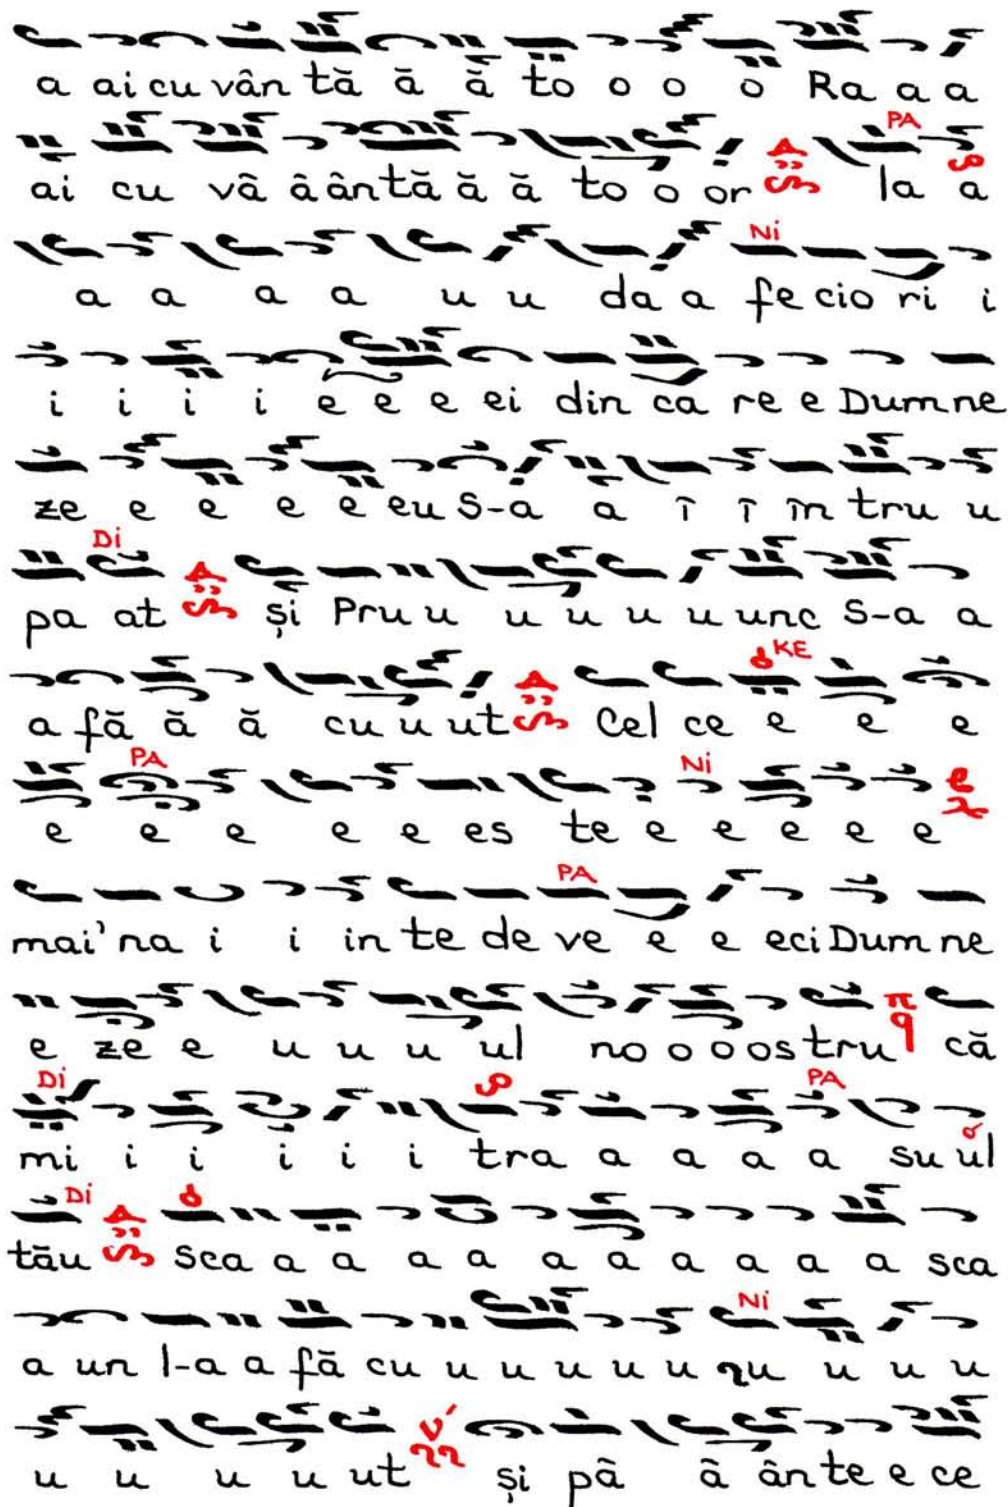 a ai cu vân tă ă ă to o o o Ra a a
PA
ai cu vâ â ântă ă ă to o or la a
Ni
a a a a u u da a fe cio ri i
i i i i e e e ei din ca re e Dum ne
ze e e e e eu S-a a î î în tru u
Di
pa at și Pru u u u u u unc S-a a
KE
a fă ă ă cu u ut Cel ce e e e
PA Ni
e e e e e es te e e e e e
PA
mai'na i i in te de ve e e eci Dum ne
e ze e u u u ul no o o os tru că
Di PA
mi i i i i i tra a a a a su ul
Di
tău sca a a a a a a a a a sca
Ni
a un l-a a fă cu u u u u u u u u
u u u u ut și pâ â ân te e ce